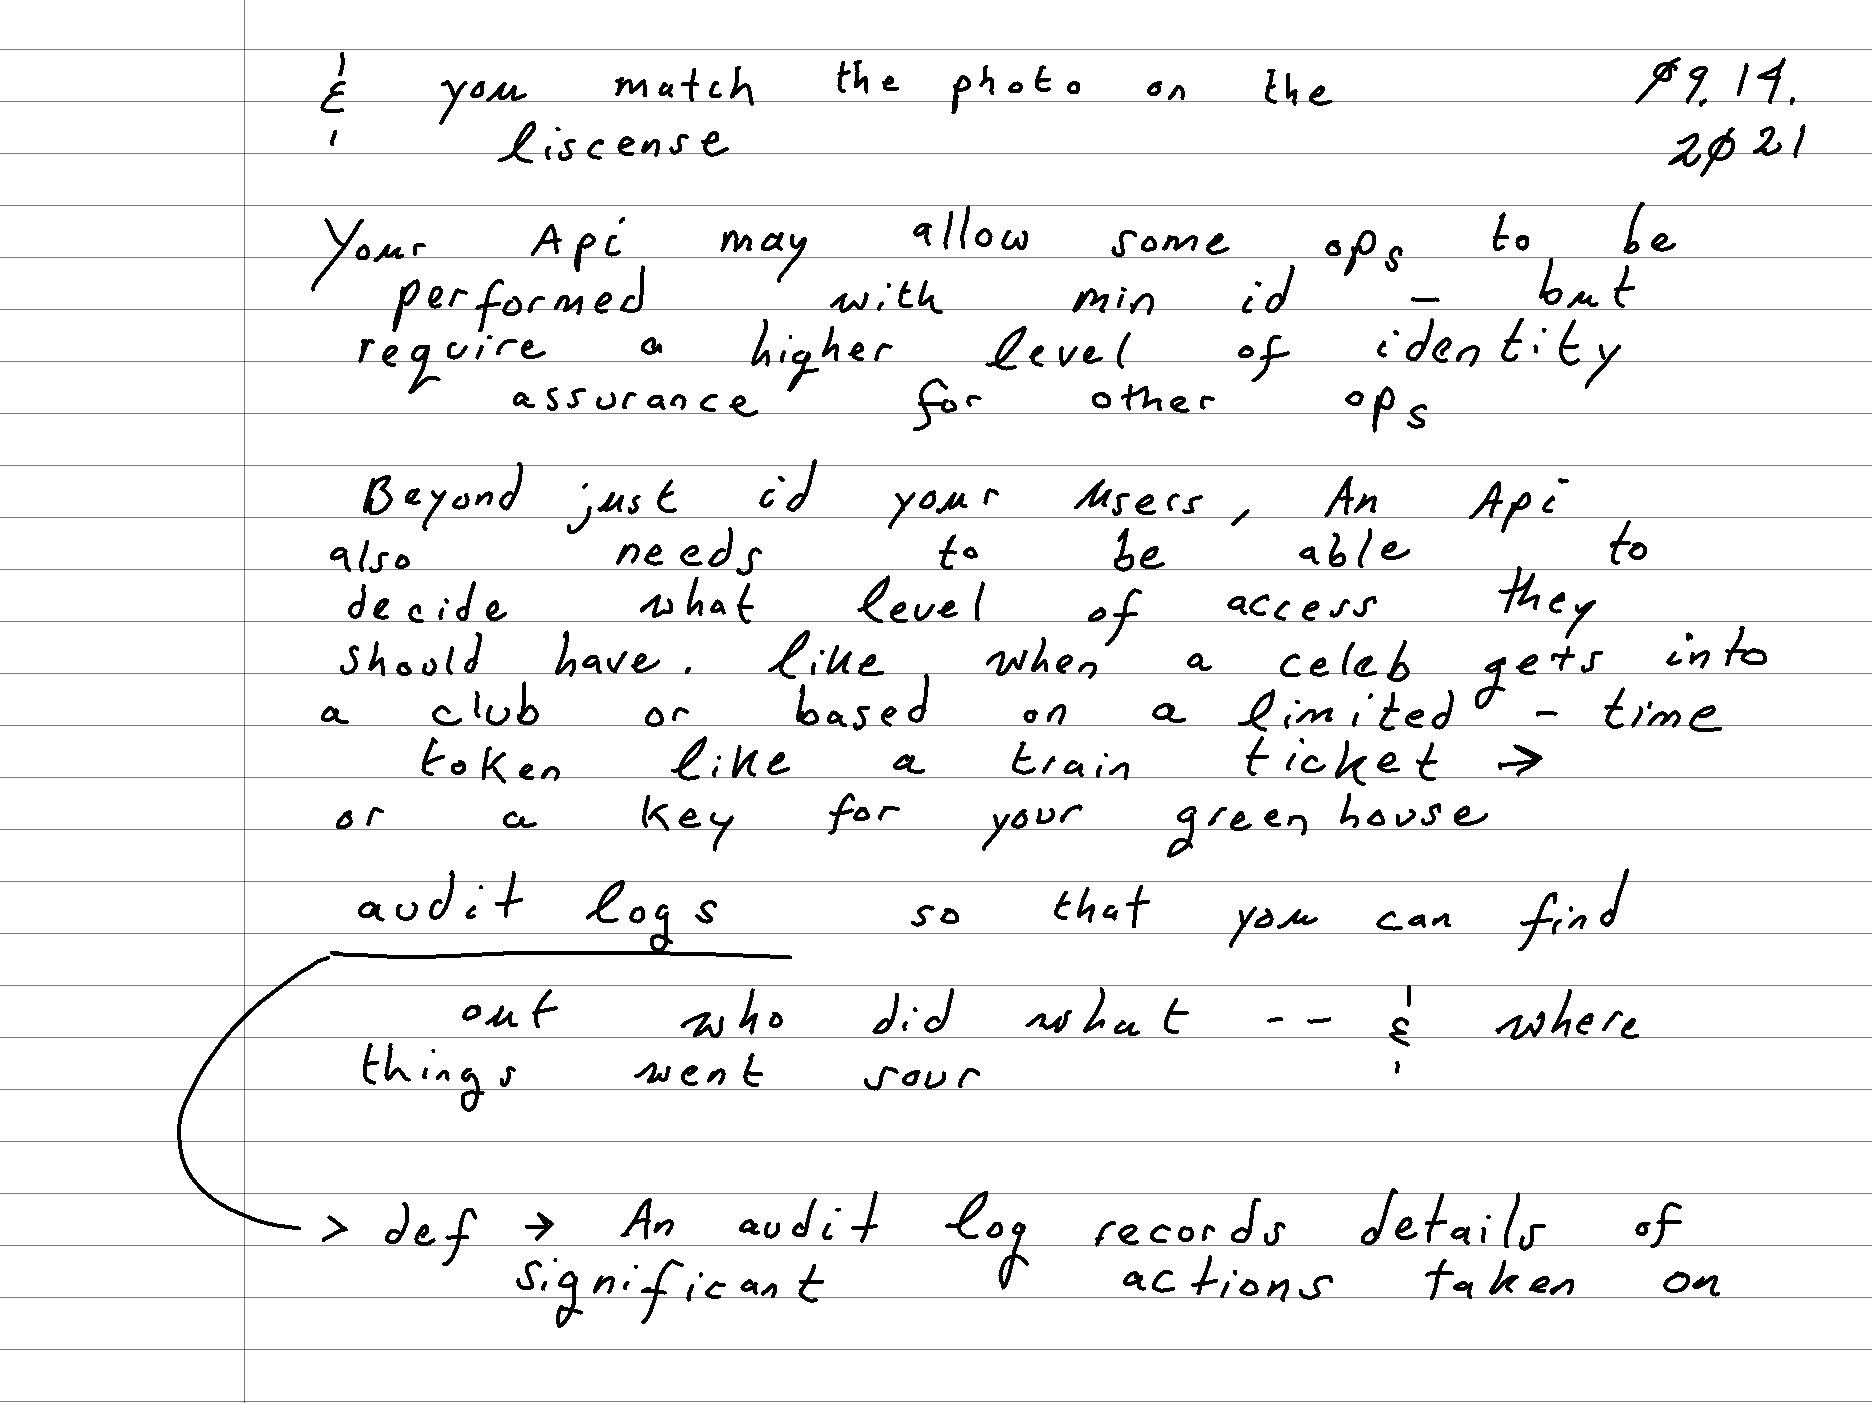 & you match the photo on the
liscense
Ø9. 14.
2Ø21
Your Api may allow some ops to be
performed with min id - but
require a higher level of identity
assurance for other ops
Beyond just id your users, An Api
also needs to be able to
decide what level of access they
should have. like when a celeb gets into
a club or based on a limited - time
token like a train ticket →
or a key for your greenhouse
audit logs so that you can find
out who did what -- & where
things went sour
> def → An audit log records details of
significant actions taken on